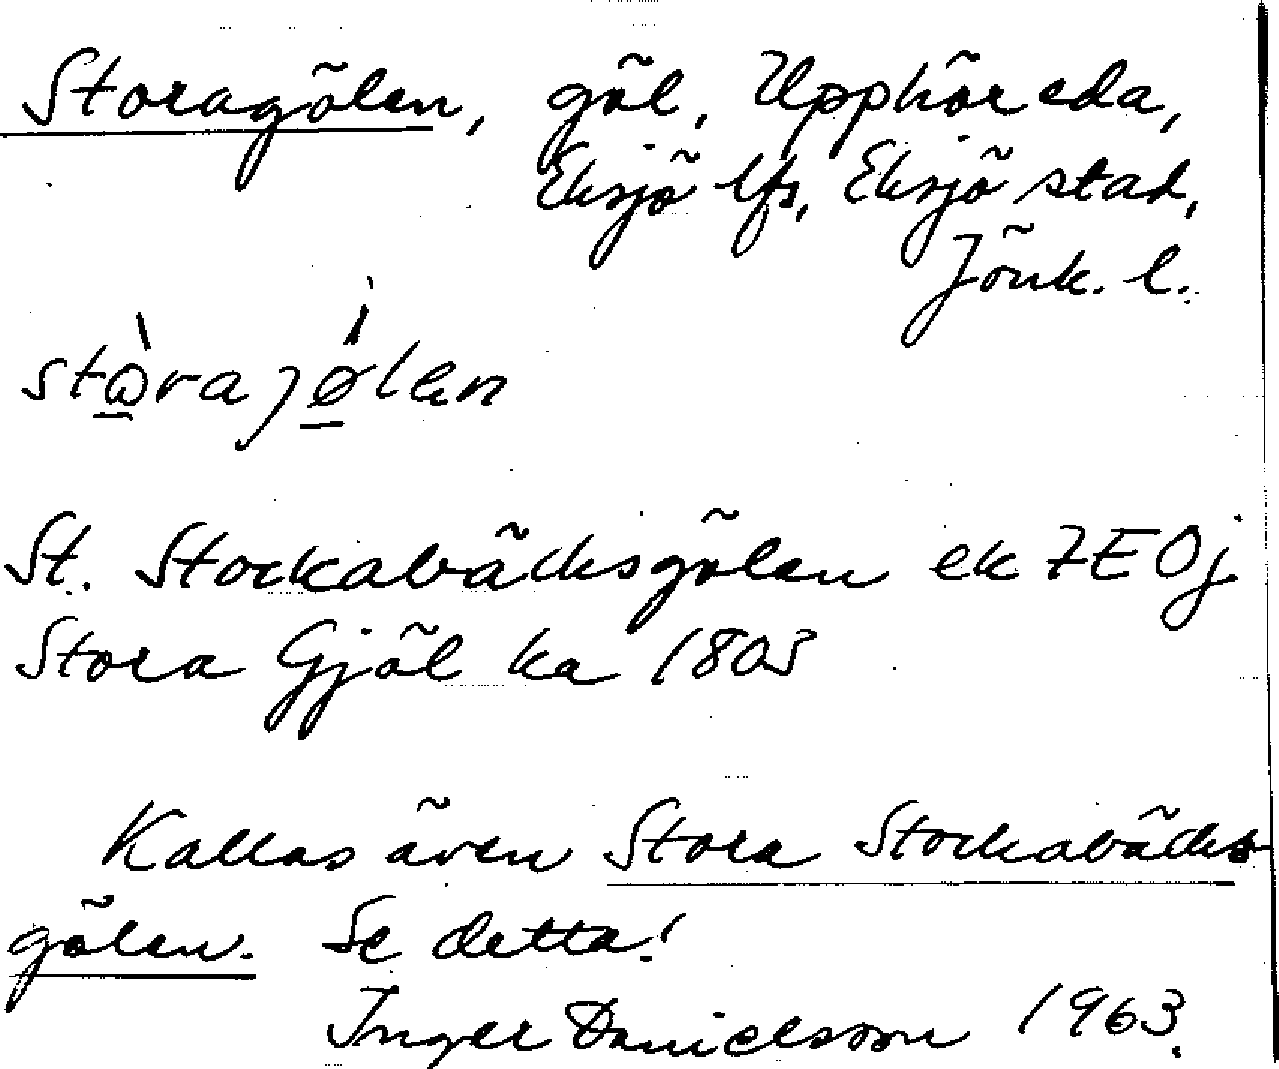 Storagölen, göl, Upphöreda,
Eksjö lfs, Eksjö stad,
Jönk. l.
stὼrajǿlen
St. Stockabäcksgölen ek 7E0j
Stora Gjöl ka 1803
Kallas även Stora Stockabäcks
gölen. Se detta!
Inger Danielsson 1963.